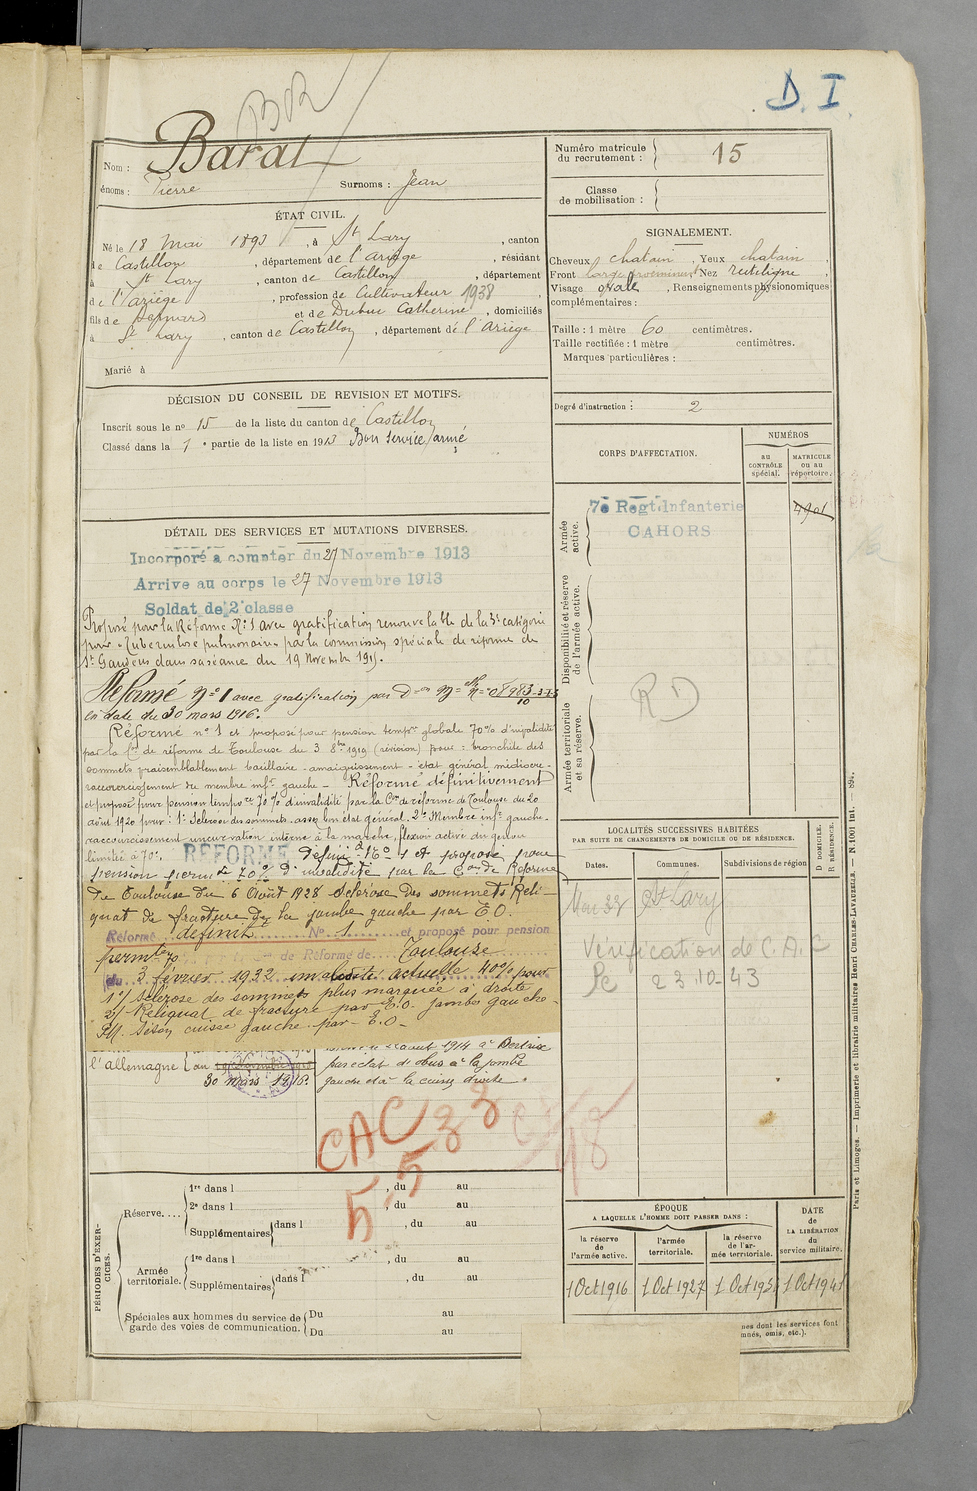 D. I.
BOR
Nom : Barat
Prénoms : Pierre Surnoms : Jean
Numéro matricule du recrutement : 15
Classe de mobilisation :
ÉTAT CIVIL.
Né le 18 Mai 1893, à St Lary, canton
de Castillon, département de l'Ariège, résidant
à St Lary, canton de Castillon, département
de l'Ariège, profession de Cultivateur 1938
fils de Bernard et de Dubuc Catherine, domiciliés
à St Lary, canton de Castillon, département de l'Ariège
Marié à
SIGNALEMENT.
Cheveux chatain, Yeux chatain,
Front large proeminent Nez rectiligne,
Visage ovale, Renseignements physionomiques
complémentaires :
Taille : 1 mètre 60 centimètres.
Taille rectifiée : 1 mètre centimètres.
Marques particulières :
Degré d'instruction : 2
DÉCISION DU CONSEIL DE REVISION ET MOTIFS.
Inscrit sous le no 15 de la liste du canton de Castillon
Classé dans la 1e partie de la liste en 1913 Bon service armé
DÉTAIL DES SERVICES ET MUTATIONS DIVERSES.
Incorporé a compter du 27 Novembre 1913
Arrive au corps le 27 Novembre 1913
Soldat de 2e classe
Proposé pour la Réforme N° 1 avec gratification renouvelable de la 5e catégorie
pour Tuberculose pulmonaire par la commission spéciale de réforme de
St Gaudens dans sa séance du 19 Novembre 1915.
Réformé No 1 avec gratification par Don Mlle No 08983-3-73/10
en date du 30 mars 1916.
Réformé no 1 et proposé pour pension tempre globale 70% d'invalidité
par la Con de réforme de Toulouse du 3 8bre 1919 (révision) pour : bronchite des
sommets vraisemblablement bacillaire - amaigrissement - état général médiocre -
raccourcissement du membre infr gauche - Réformé définitivement
et proposé pour pension tempore 70% d'invalidité par la Con de réforme de Toulouse du 20
août 1920 pour : 1° Sclérose des sommets - assez bon état général. 2° Membre infr gauche -
raccourcissement - incurvation interne à la marche, flexion active du genou
limitée à 70°. RÉFORMÉ défini- no 1 et proposé pour
pension permte 70% d'invalidité par la Con de Réforme
de Toulouse du 6 Août 1928 Sclérose des sommets Reli-
quat de fracture de la jambe gauche par E.O.
Réformé définit. No 1 et proposé pour pension
permte de Réforme de Toulouse
du 3 février 1932 invalidité actuelle 40% pour
1°/ Sclérose des sommets plus marquée à droite
2/ Reliquat de fracture par E.O. jambe gauche -
Séton cuisse gauche par E.O -
l'allemagne
30 mars 1916.
août 1914 à Bertrix
par éclat d'obus à la jambe
gauche et à la cuisse droite.
CAC 33
5.5
CORPS D'AFFECTATION.
NUMÉROS
au CONTRÔLE spécial.
MATRICULE ou au répertoire.
Armée active.
7e Regt Infanterie
CAHORS
4901
Disponibilité et réserve de l'armée active.
Armée territoriale et sa réserve.
RD
LOCALITÉS SUCCESSIVES HABITÉES
PAR SUITE DE CHANGEMENTS DE DOMICILE OU DE RÉSIDENCE.
Dates. Communes. Subdivisions de région
D DOMICILE. R RÉSIDENCE.
Mai 33 St Lary
Vérification de C.A.C
Le 23.10-43
PÉRIODES D'EXERCICES.
Réserve....
1re dans l , du au
2e dans l , du au
Supplémentaires dans l , du au
Armée territoriale.
1re dans l , du au
Supplémentaires dans l , du au
Spéciales aux hommes du service de garde des voies de communication.
Du au
Du au
ÉPOQUE
A LAQUELLE L'HOMME DOIT PASSER DANS :
DATE de LA LIBÉRATION du service militaire.
la réserve de l'armée active.
l'armée territoriale.
la réserve de l'armée territoriale.
1 Oct 1916 1 Oct 1927 1 Oct 193 1 Oct 1941
nes dont les services font
mnés, omis, etc.).
Paris et Limoges. — Imprimerie et librairie militaires Henri CHARLES-LAVAUZELLE. — N. 1001 Int. — 894.